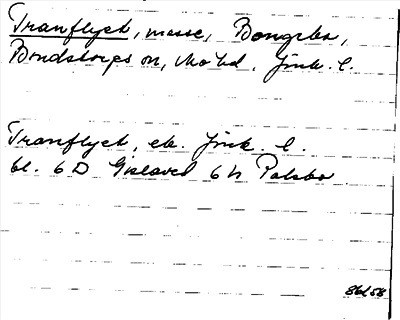 Tranflyet, mosse, Bongebo,
Bondstorps sn, Mo hd, Jönk. l.
Tranflyet, ek. Jönk. l.
bl. 6D Gislaved 6h Palsbo